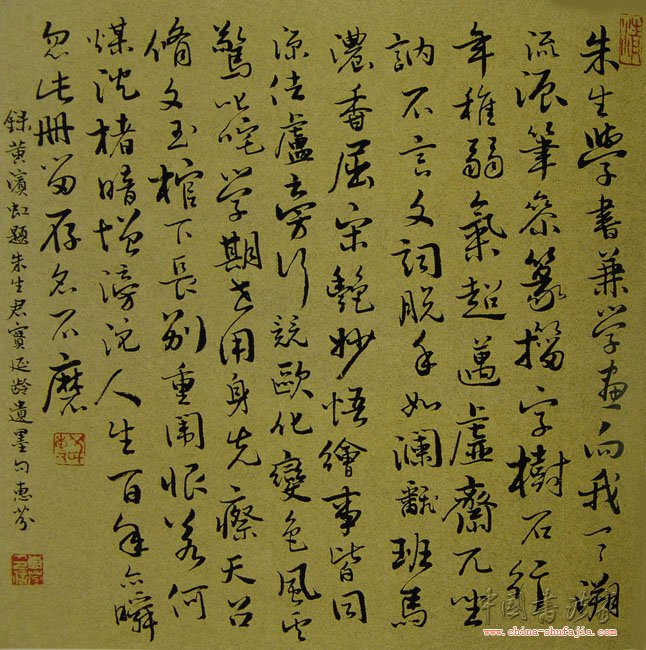 朱生學書兼学画向我了溯
流源笔柰篆籀字樹石行
年稚弱氣超邁虛齋兀坐
訥不言文詞脱手如瀾翻班馬
濃香屈宋艷妙悟繪事皆同
源佉盧旁行競歐化變色風雲
驚叱咤学期世用身先瘵天召
脩文玉棺下長別重闈恨若何
煤沈楮暗增滂沱人生百年亦瞬
忽此册留存名不磨
録黄濱虹題朱生君實延齡遺墨句惠芬
中国书法家
www.china-shufajia.com